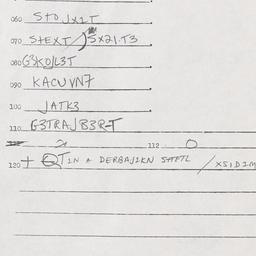 060 STO JX1T
070 STEXT / 5X21.T3
080 G3KOJL3T
090 KACUVN7
100 JATK3
110 G3TRAJB3R-T
112 O
120 + TIN A DERBAJ1KN / XSIDIM